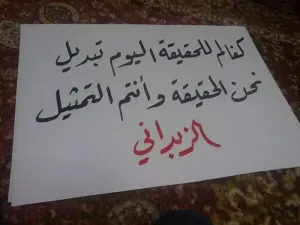 كفاكم للحقيقة اليوم تبديل
نحن الحقيقة وأنتم التمثيل
الزبداني